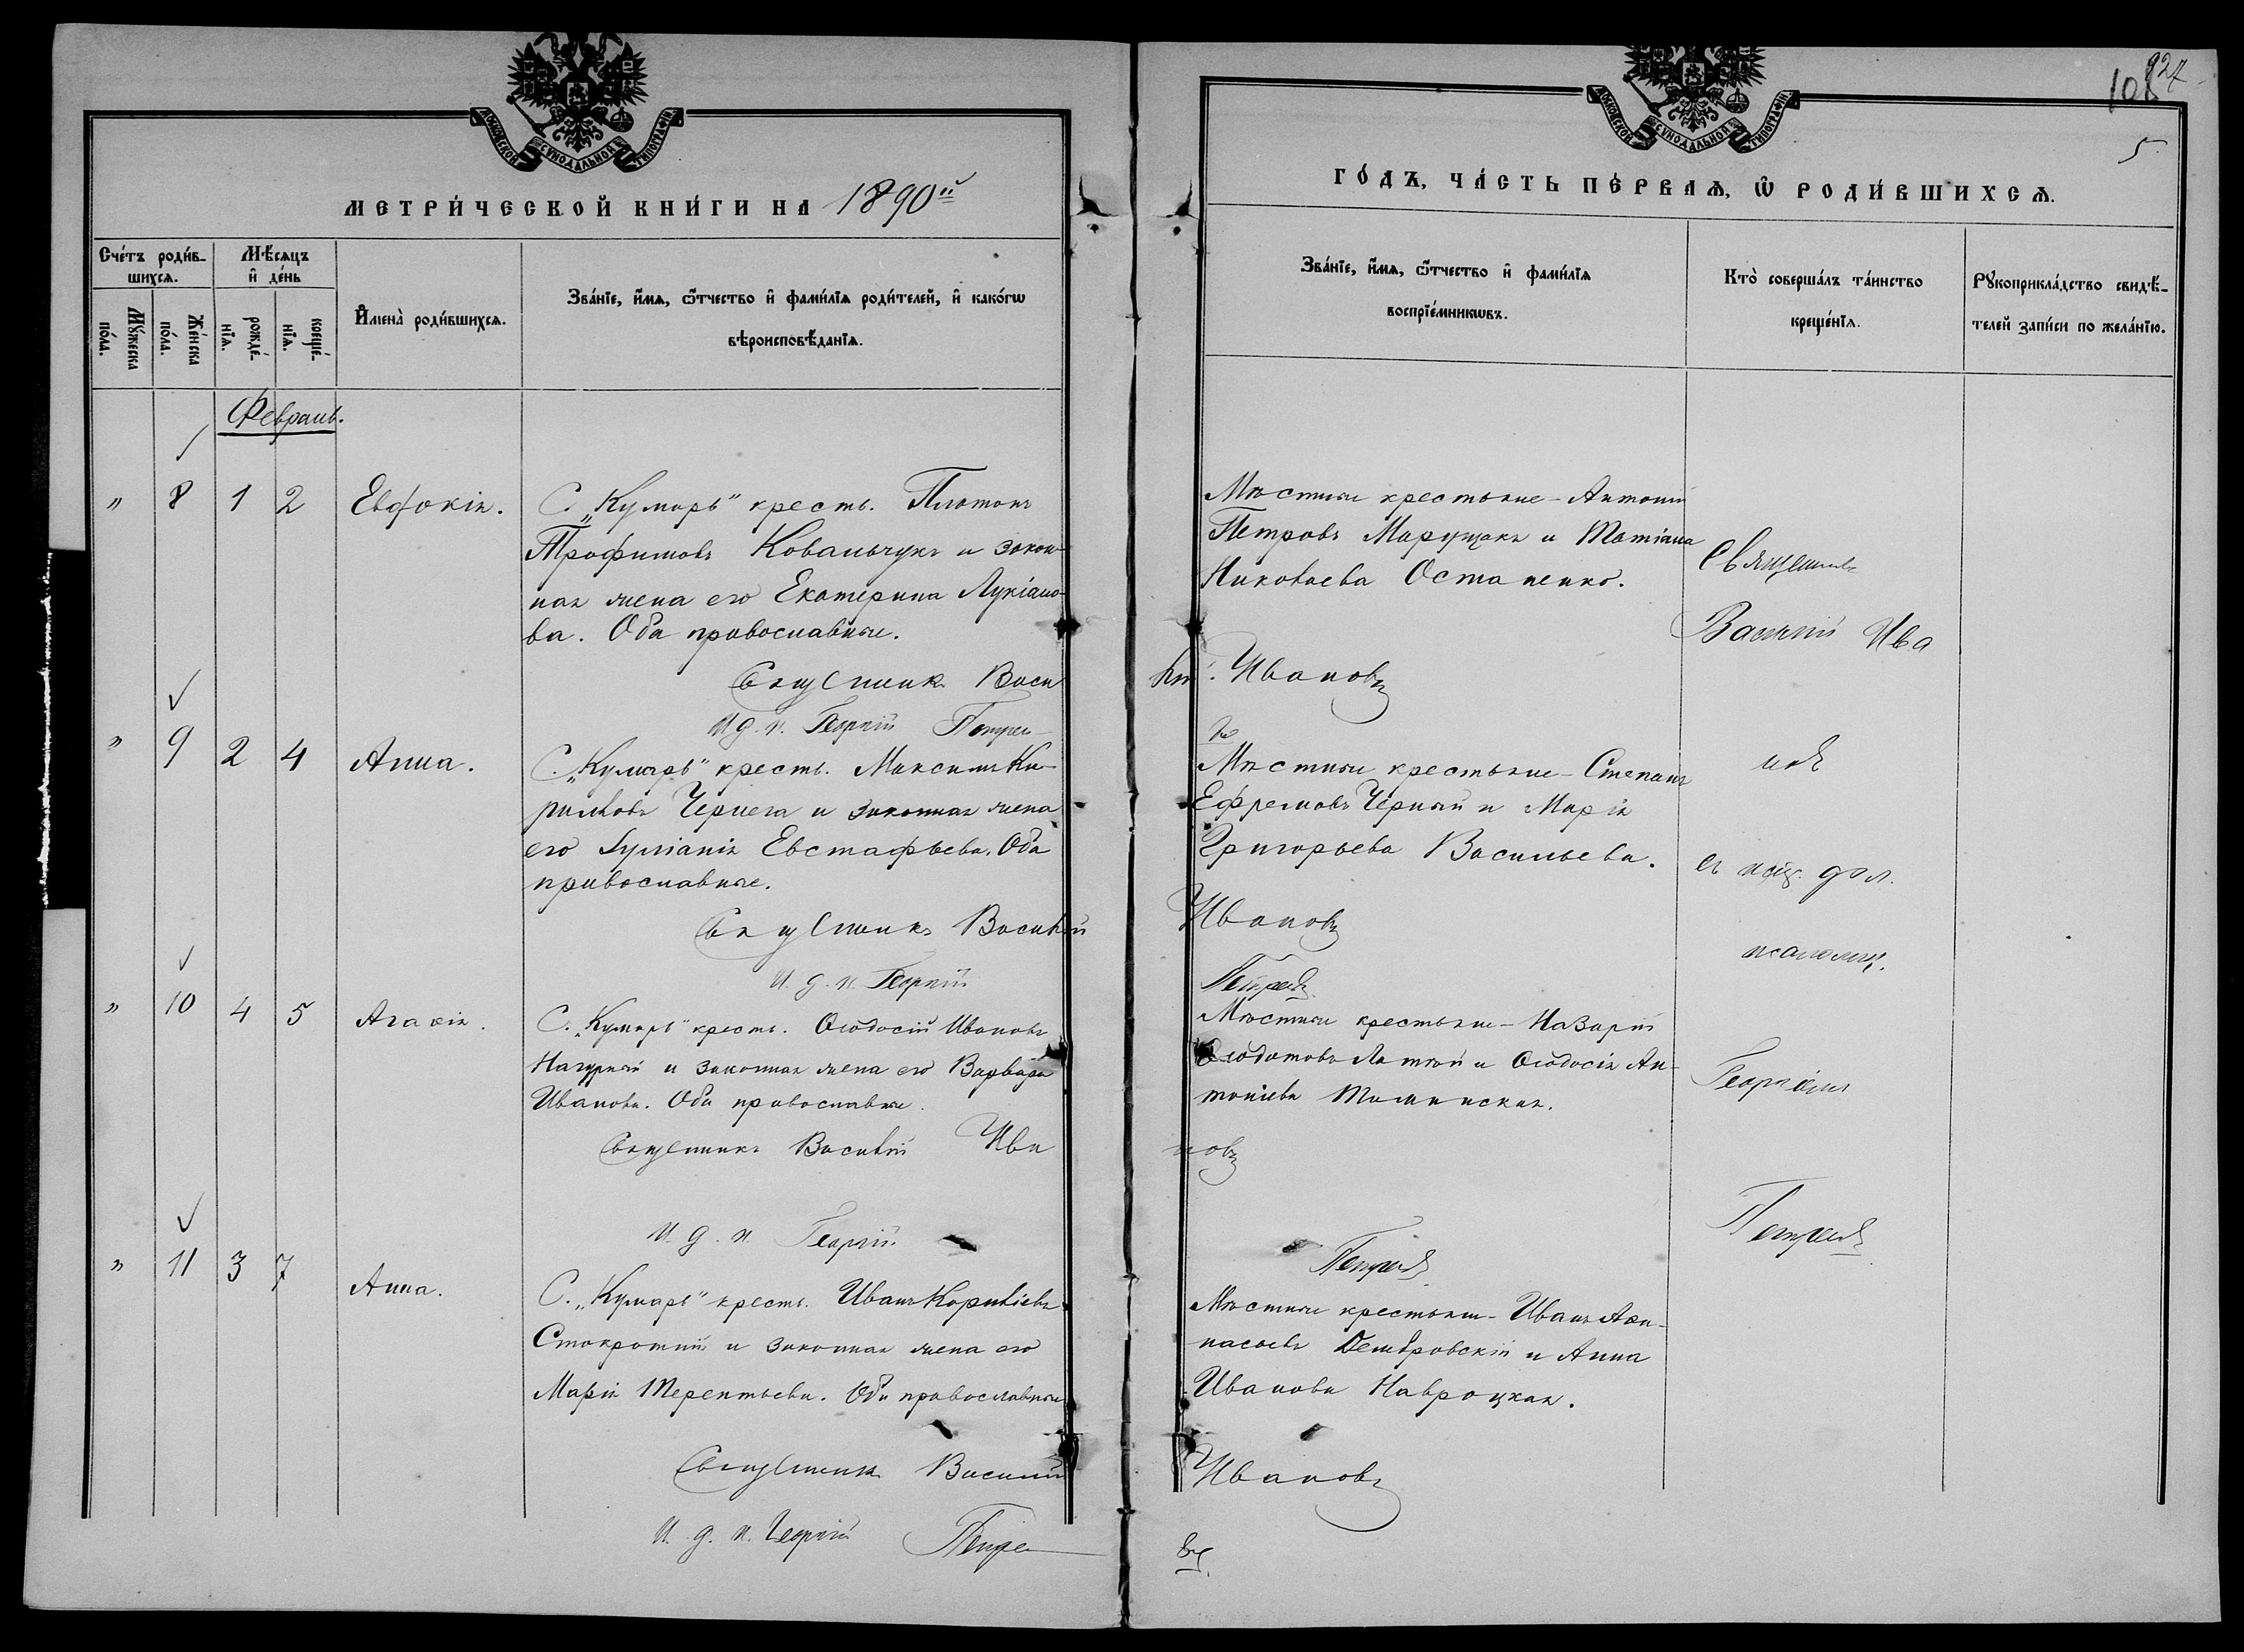 МОСКОВСКОЙ СѴНОДАЛЬНОЙ ТИПОГРАФІИ
МЕТРИ́ЧЕСКОЙ КНИ́ГИ НА 1890й
Сче́тъ роди́в-
шихся.
Мѣ́сяцъ
и҆ де́нь
Мꙋ́жеска
по́ла.
Же́нска
по́ла.
рожде́-
нїѧ.
креще́-
нїѧ.
И҆мена̀ роди́вшихсѧ.
Зва́нїе, и҆́мѧ, ѻ҆́тчество и҆ фами́лїѧ роди́телей, и҆ како́гѡ
вѣроисповѣ́данїѧ.
Февраль.
" 8 1 2 Евдокія.
С. „Кумары" крест. Платонъ
Трофимовъ Ковальчукъ и закон-
ная жена его Екатерина Лукіано-
ва. Оба православные.
Священникъ Васи
И. д. п. Георгій Петре-
" 9 2 4 Анна.
С. „Кумары" крест. Максимъ Ки-
риловъ Чернега и законная жена
его Іуліанія Евстафьева. Оба
православные.
Священникъ Василій
И. д. п. Георгій
" 10 4 5 Агафія.
С. „Кумары" крест. Ѳеодосій Ивановъ
Нагурный и законная жена его Варвара
Иванова. Оба православные.
Священникъ Василій Ива
И. д. п. Георгій
" 11 3 7 Анна.
С. „Кумары" крест. Иванъ Корниліевъ
Стокротній и законная жена его
Марія Терентьева. Оба православные
Священникъ Василій
И. д. п. Георгій Петре
927
108
5
МОСКОВСКОЙ СѴНОДАЛЬНОЙ ТИПОГРАФІИ
ГО́ДЪ, ЧА́СТЬ ПЕ́РВАѦ, Ѡ҆ РОДИ́ВШИХСѦ.
Зва́нїе, и҆́мѧ, ѻ҆́тчество и҆ фами́лїѧ
воспрїе́мникѡвъ.
Кто̀ соверша́лъ та́инство
креще́нїѧ.
Рꙋкоприкла́дство свидѣ́-
телей за́писи по жела́нїю.
Мѣстные крестьяне - Антоній
Петровъ Марущакъ и Татіана
Николаева Остапенко.
лій Ивановъ
въ
Мѣстные крестьяне - Степанъ
Ефремовъ Черный и Марія
Григорьева Васильева.
Ивановъ
Петревъ
Мѣстные крестьяне - Назарій
Ѳеодотовъ Лютый и Ѳеодосія Ан-
тоніева
новъ
Петревъ
Мѣстные крестьяне - Иванъ Аѳа-
насьевъ Домбровскій и Анна
Иванова Навроцкая.
Ивановъ
въ
Священникъ
Василій Ива
новъ
съ исп. дол.
псаломщ.
Георгіемъ